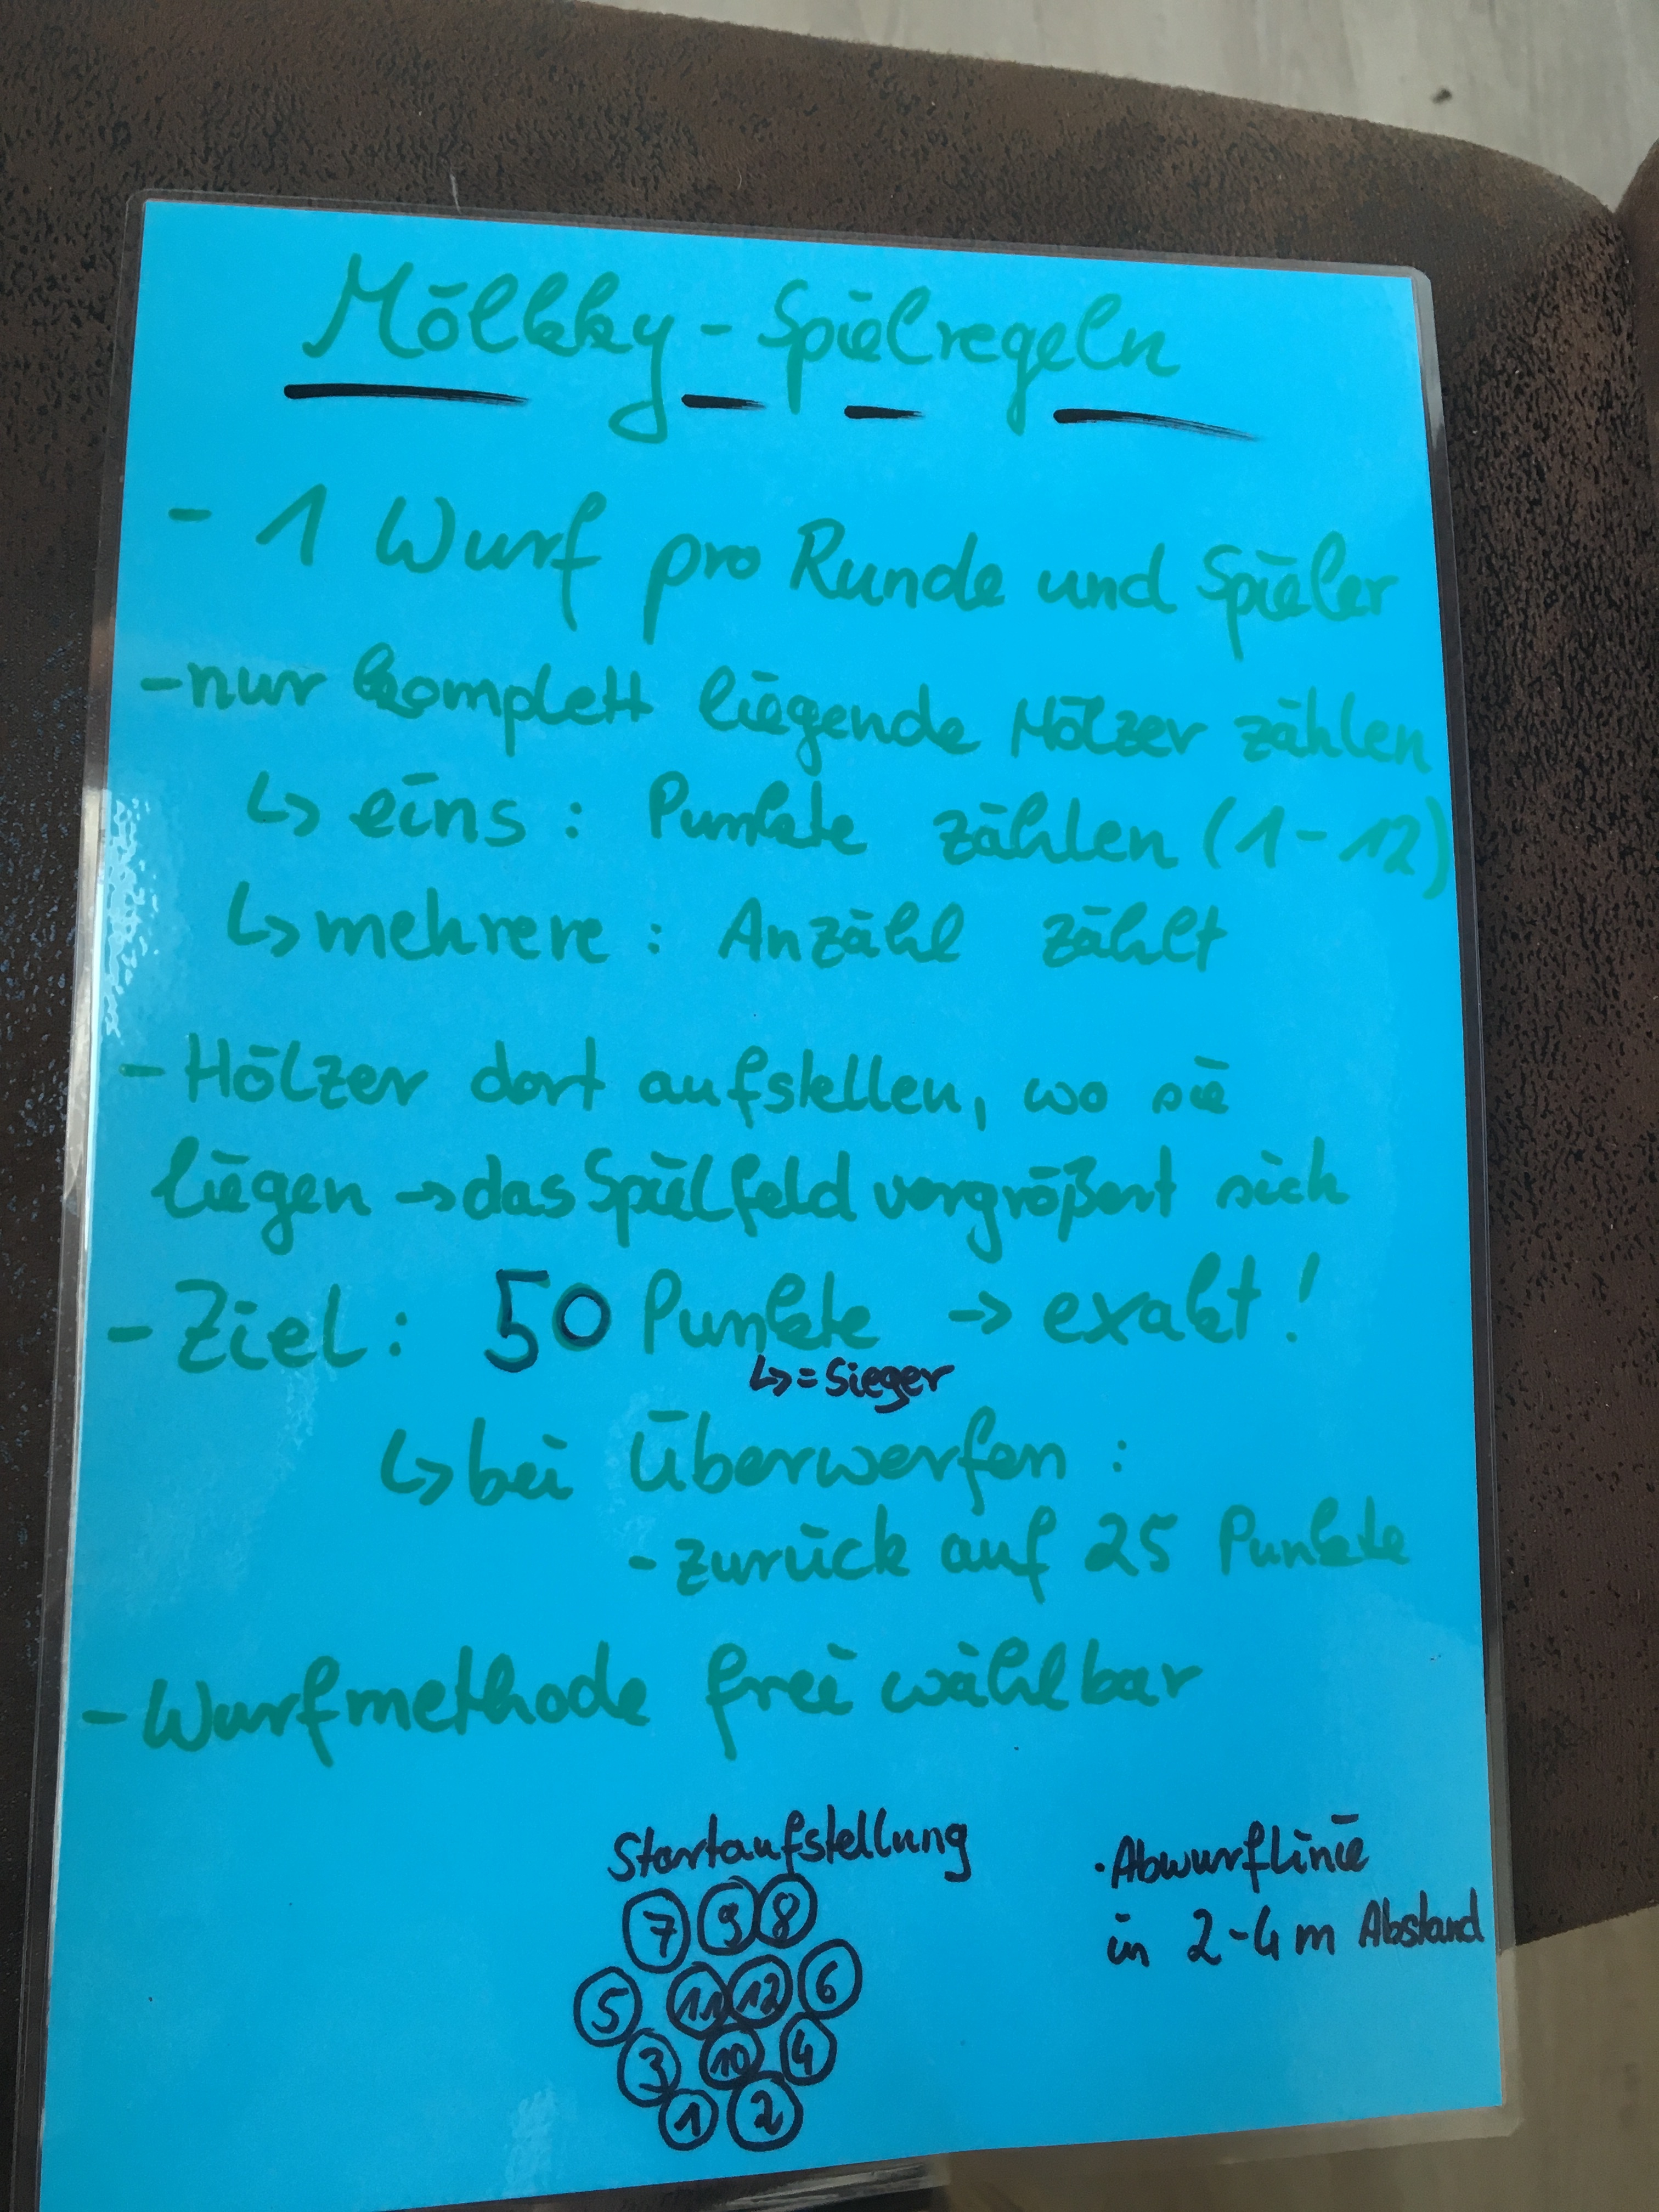 Mölkky - Spielregeln
- 1 Wurf pro Runde und Spieler
- nur komplett liegende Hölzer zählen
↳ eins : Punkte zählen (1-12)
↳ mehrere : Anzähl zählt
- Hölzer dort aufstellen, wo sie
liegen → das Spielfeld vergrößert sich
- Ziel : 50 Punkte → exakt !
↳ = Sieger
↳ bei Überwerfen :
- zurück auf 25 Punkte
- Wurfmethode frei wählbar
Startaufstellung
7 9 8
5 11 12 6
3 10 4
1 2
· Abwurflinie
in 2-4 m Abstand